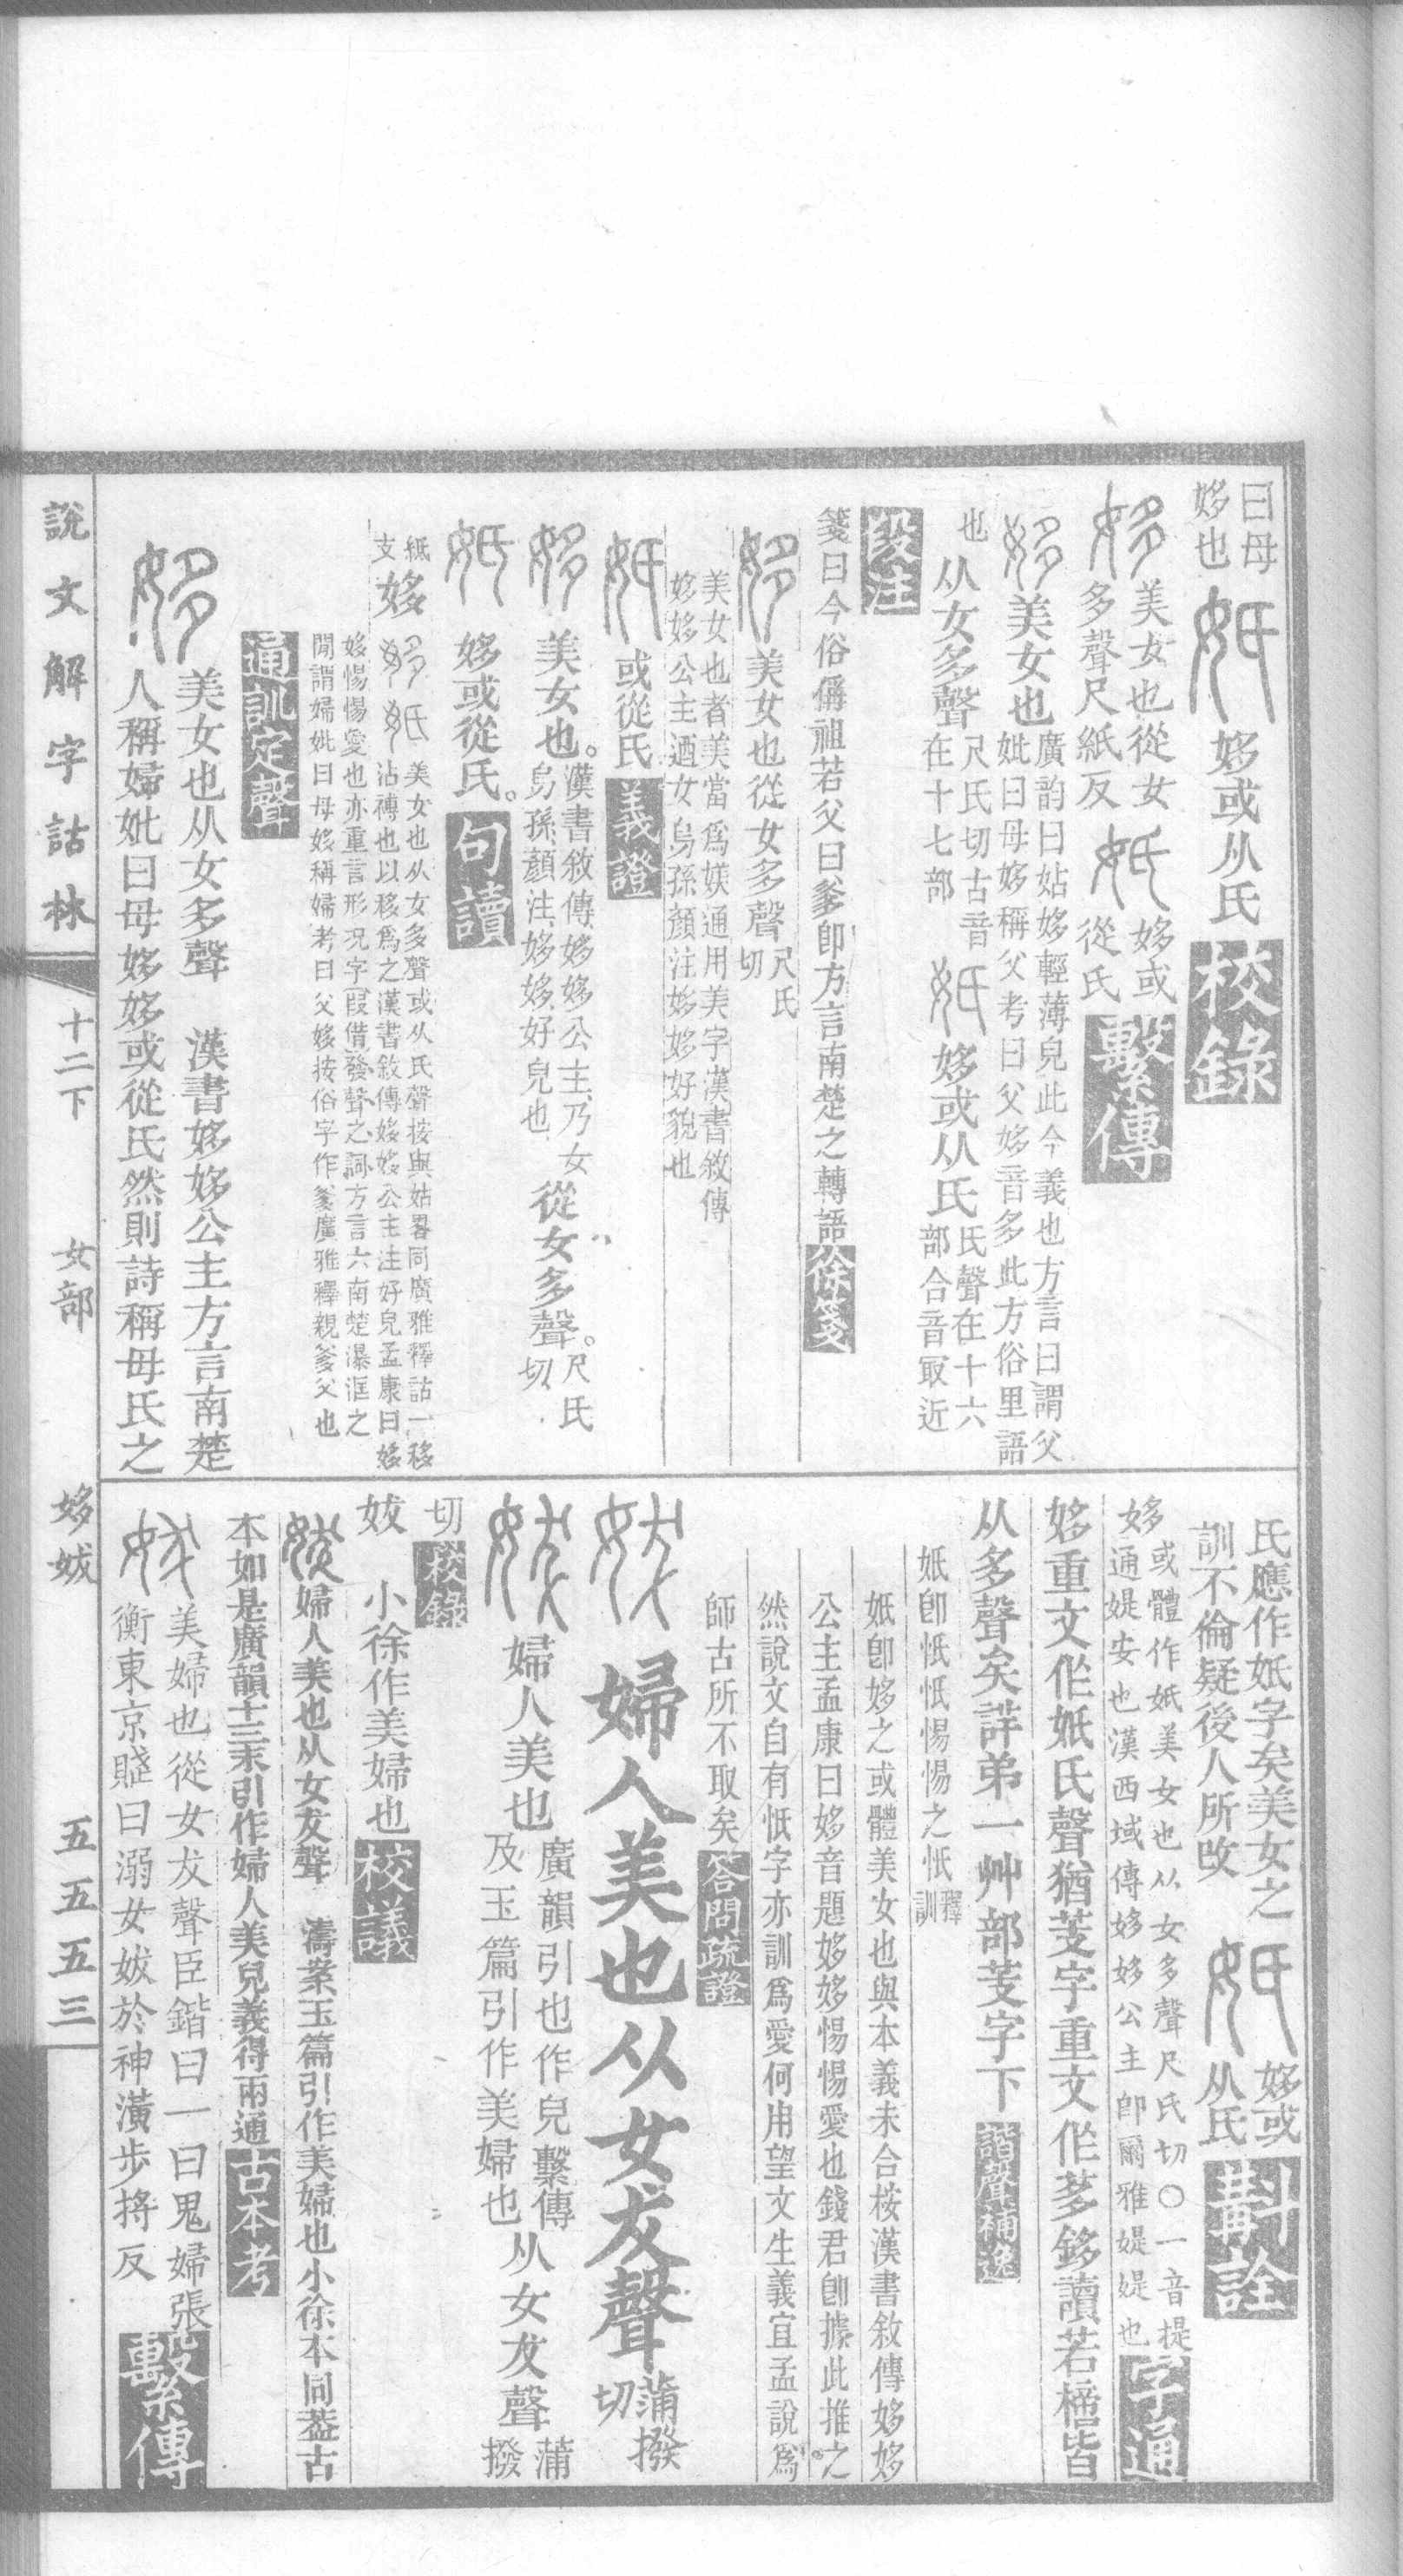 曰母
姼也
𡛜 姼或从氏 校錄
姼 美女也從女
多聲尺紙反 𡛜 姼或
從氏 繫傳
姼 美女也 廣韵曰姑姼輕薄皃此今義也方言曰謂父
妣曰母姼稱父考曰父姼音多此方俗里語
也 从女多聲 尺氏切古音
在十七部 𡛜 姼或从氏 氏聲在十六
部合音㝡近
段注
箋曰今俗偁祖若父曰爹卽方言南楚之轉語 徐箋
姼 美女也從女多聲 尺氏
切
美女也者美當爲媄通用美字漢書敘傳
姼姼公主迺女烏孫顏注姼姼好貌也
𡛜 或從氏 義證
姼 美女也。 漢書敘傳姼姼公主乃女
烏孫顏注姼姼好皃也 從女多聲。 尺氏
切
𡛜 姼或從氏。 句讀
紙
支 姼 美女也从女多聲或从氏聲按與姑畧同廣雅釋詁一姼
姼惕惕愛也亦重言形况字
通訓定聲
姼 美女也从女多聲 漢書姼姼公主方言南楚
人稱婦妣曰母姼姼或從氏然則詩稱母氏之
說文解字詁林
十二下
女部
姼 妭
五五五三
氏應作𡛜字矣美女之
訓不倫疑後人所改 𡛜 姼或
从氏 斠詮
姼 或體作𡛜美女也从女多聲尺氏切〇一音提
通媞安也漢西域傳姼姼公主卽爾雅媞媞也 字通
姼重文作𡛜氏聲猶芰字重文作茤䤱讀若楴皆
从多聲矣詳弟一艸部芰字下 諧聲補逸
𡛜卽忯忯惕惕之忯 釋
訓
𡛜卽姼之或體美女也與本義未合桉漢書敘傳姼姼
公主孟康曰姼音題姼姼惕惕愛也錢君卽據此推之。
然說文自有忯字亦訓爲愛何用望文生義宜孟說爲
師古所不取矣 答問疏證
妭 婦人美也从女犮聲 蒲撥
切
妭 婦人美也 廣韻引也作皃繫傳
及玉篇引作美婦也 从女犮聲 蒲
撥
切 校錄
妭 小徐作美婦也 校議
妭 婦人美也从女犮聲 濤案玉篇引作美婦也小徐本同葢古
本如是廣韻十三末引作婦人美皃義得兩通 古本考
妭 美婦也從女犮聲臣鍇曰一曰鬼婦張
衡東京賦曰溺女妭於神潢步捋反 繫傳